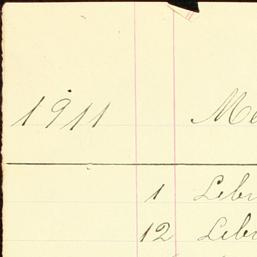 1911 Me
1 Lebr
12 Lebr